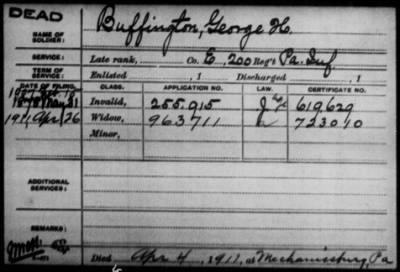 DEAD
NAME OF SOLDIER: Buffington, George H.
SERVICE: Late rank, Co. E, 200 Reg't Pa. Inf
TERM OF SERVICE: Enlisted , 1 Discharged , 1
DATE OF FILING. CLASS. APPLICATION NO. LAW. CERTIFICATE NO.
1878 May 31 Invalid, 255.915 619629
1911, Apr 26 Widow, 963711 723010
Minor,
ADDITIONAL SERVICES:
REMARKS:
Died Apr 4, 1911, at Mechanicsburg, Pa